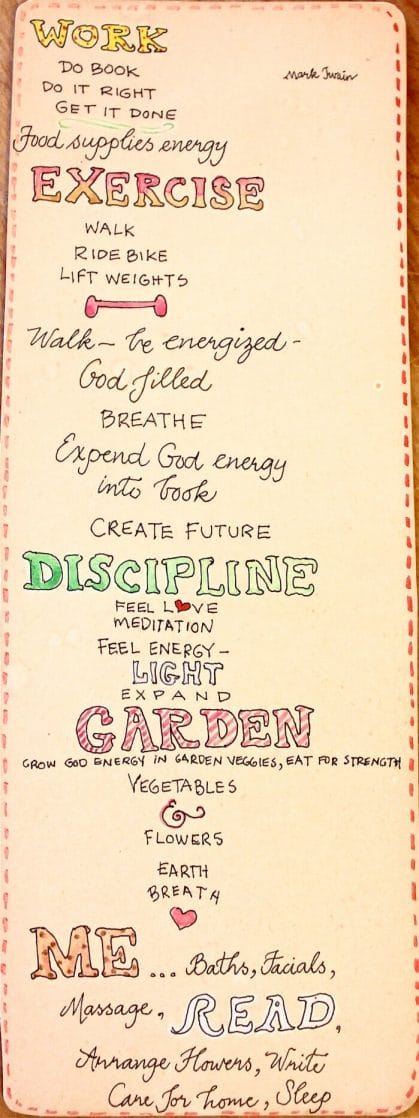 WORK
DO BOOK
Mark Twain
DO IT RIGHT
GET IT DONE
Food supplies energy
EXERCISE
WALK
RIDE BIKE
LIFT WEIGHTS
Walk - be energized -
God filled
BREATHE
Expend God energy
into book
CREATE FUTURE
DISCIPLINE
FEEL LOVE
MEDITATION
FEEL ENERGY -
LIGHT
EXPAND
GARDEN
GROW GOD ENERGY IN GARDEN VEGGIES, EAT FOR STRENGTH
VEGETABLES
&
FLOWERS
EARTH
BREATH
ME ... Baths, Facials,
Massage, READ,
Arrange Flowers, Write
Care for home, Sleep